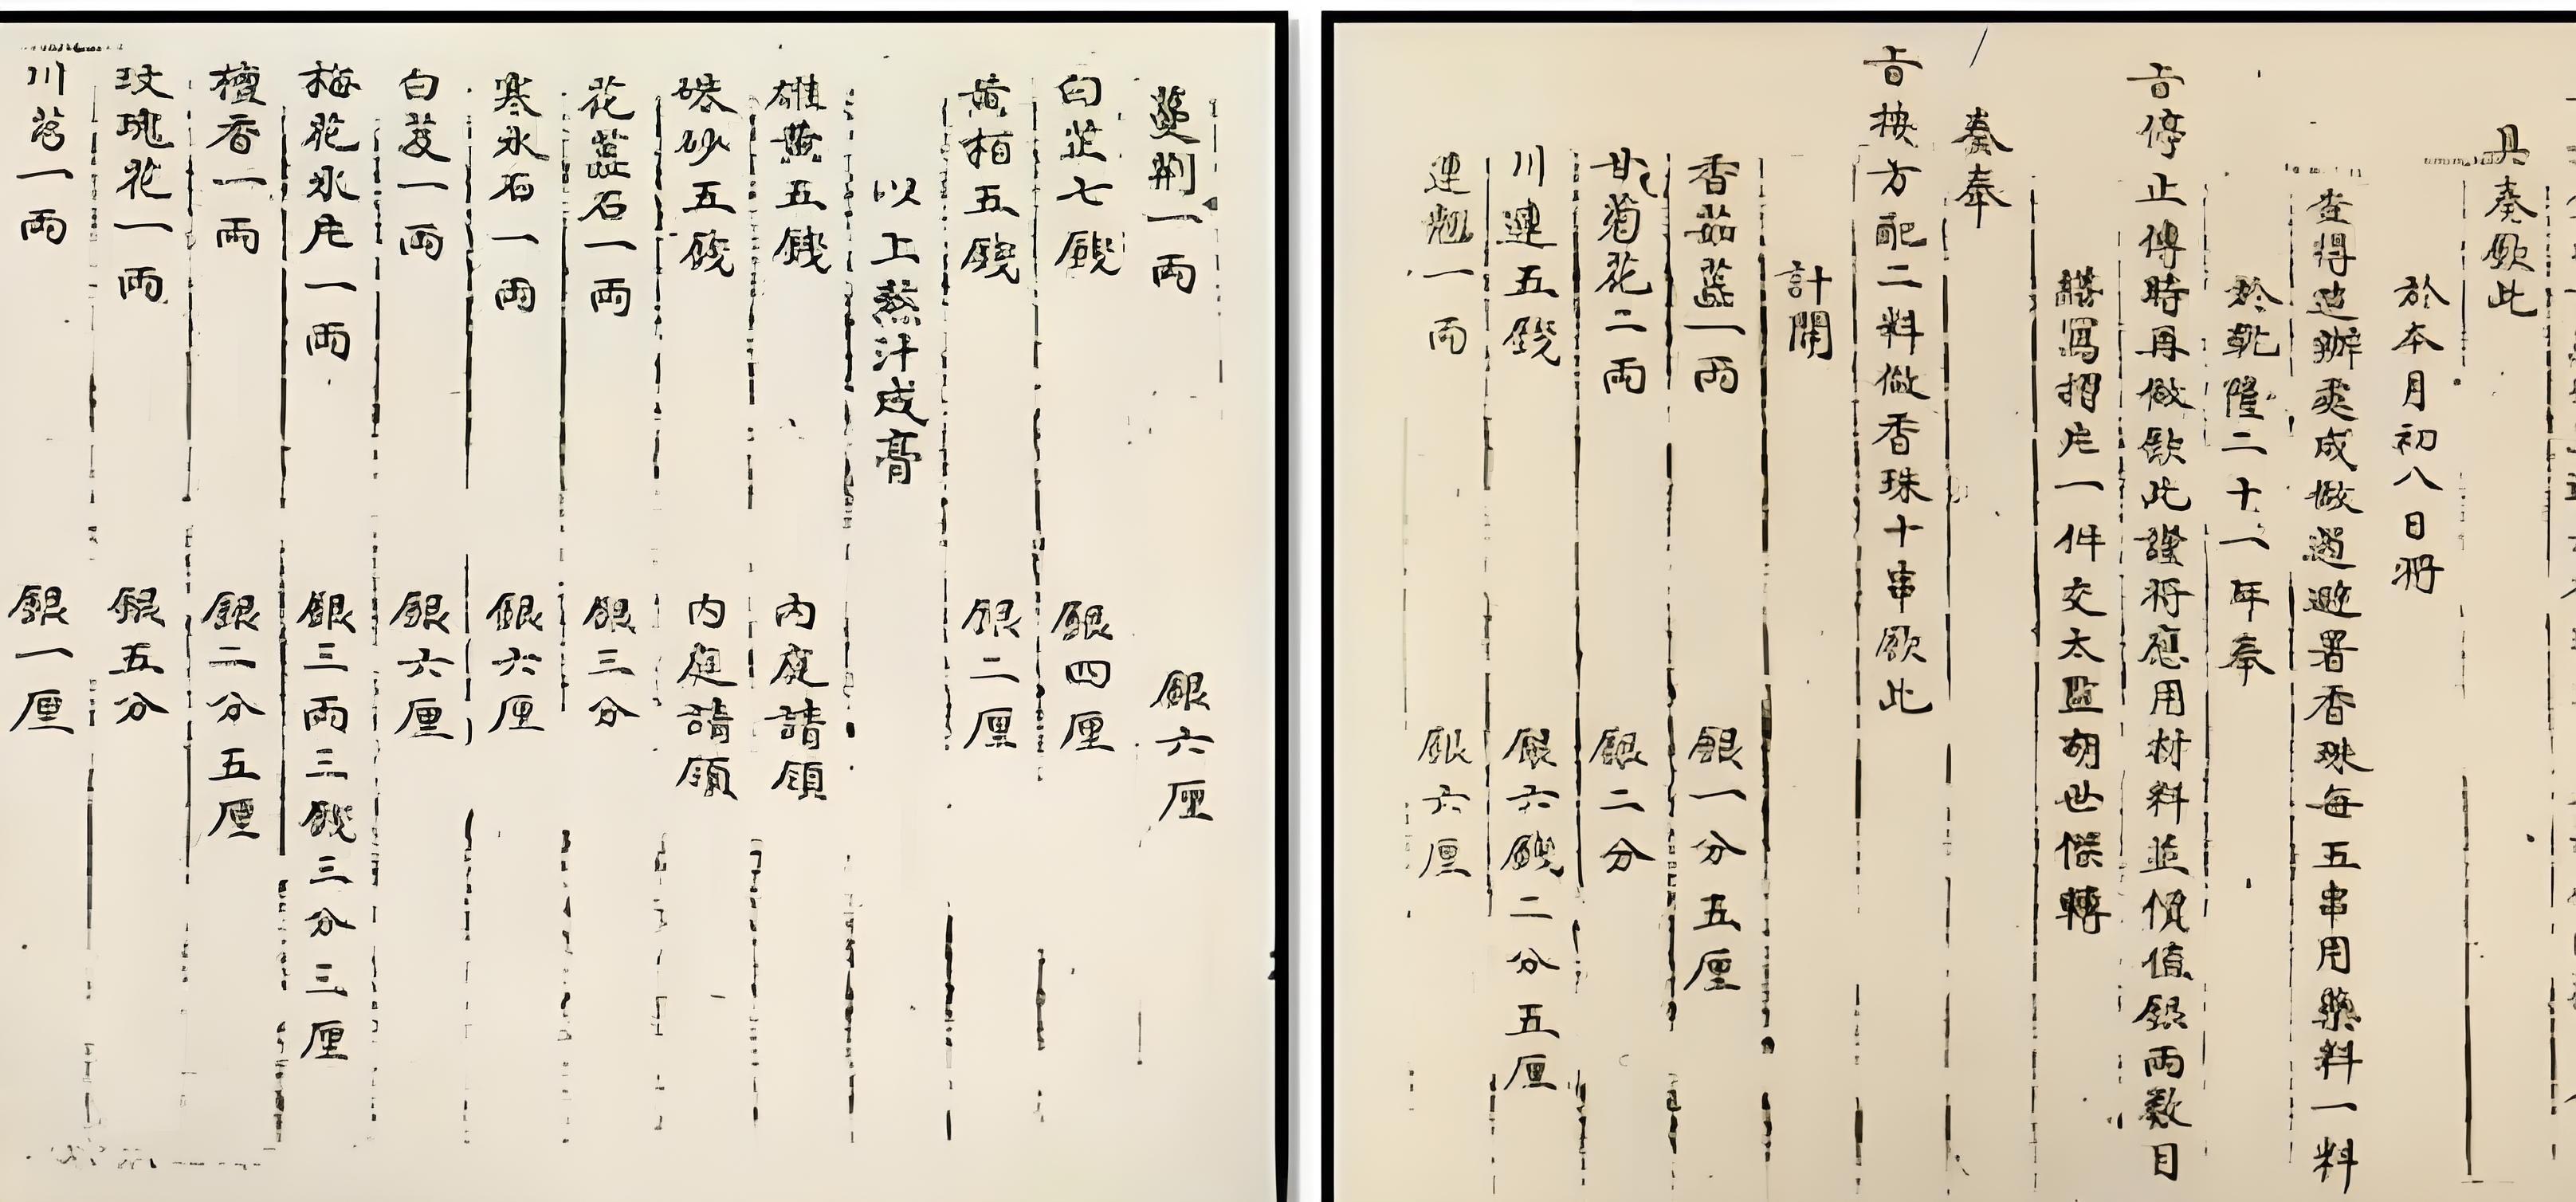 具奏欽此
於本月初八日將
查得造辦處成做過避暑香珠每五串用藥料一料
於乾隆二十一年奉
旨停止傳時再做欽此謹將應用材料並價值銀兩數目
繕寫摺片一件交太監胡世傑轉
奏奉
旨按方配二料做香珠十串欽此
計開
香茹藍一兩 銀一分五厘
甘菊花二兩 銀二分
川連五錢 銀六錢二分五厘
連翹一兩 銀六厘
蔓荊一兩 銀六厘
白芷七錢 銀四厘
黃柏五錢 銀二厘
以上熬汁成膏
雄黃五錢 內庭請領
硃砂五錢 內庭請領
花蕊石一兩 銀三分
寒水石一兩 銀六厘
白芨一兩 銀六厘
梅花冰片一兩 銀三兩三錢三分三厘
檀香一兩 銀二分五厘
玫瑰花一兩 銀五分
川芎一兩 銀一厘